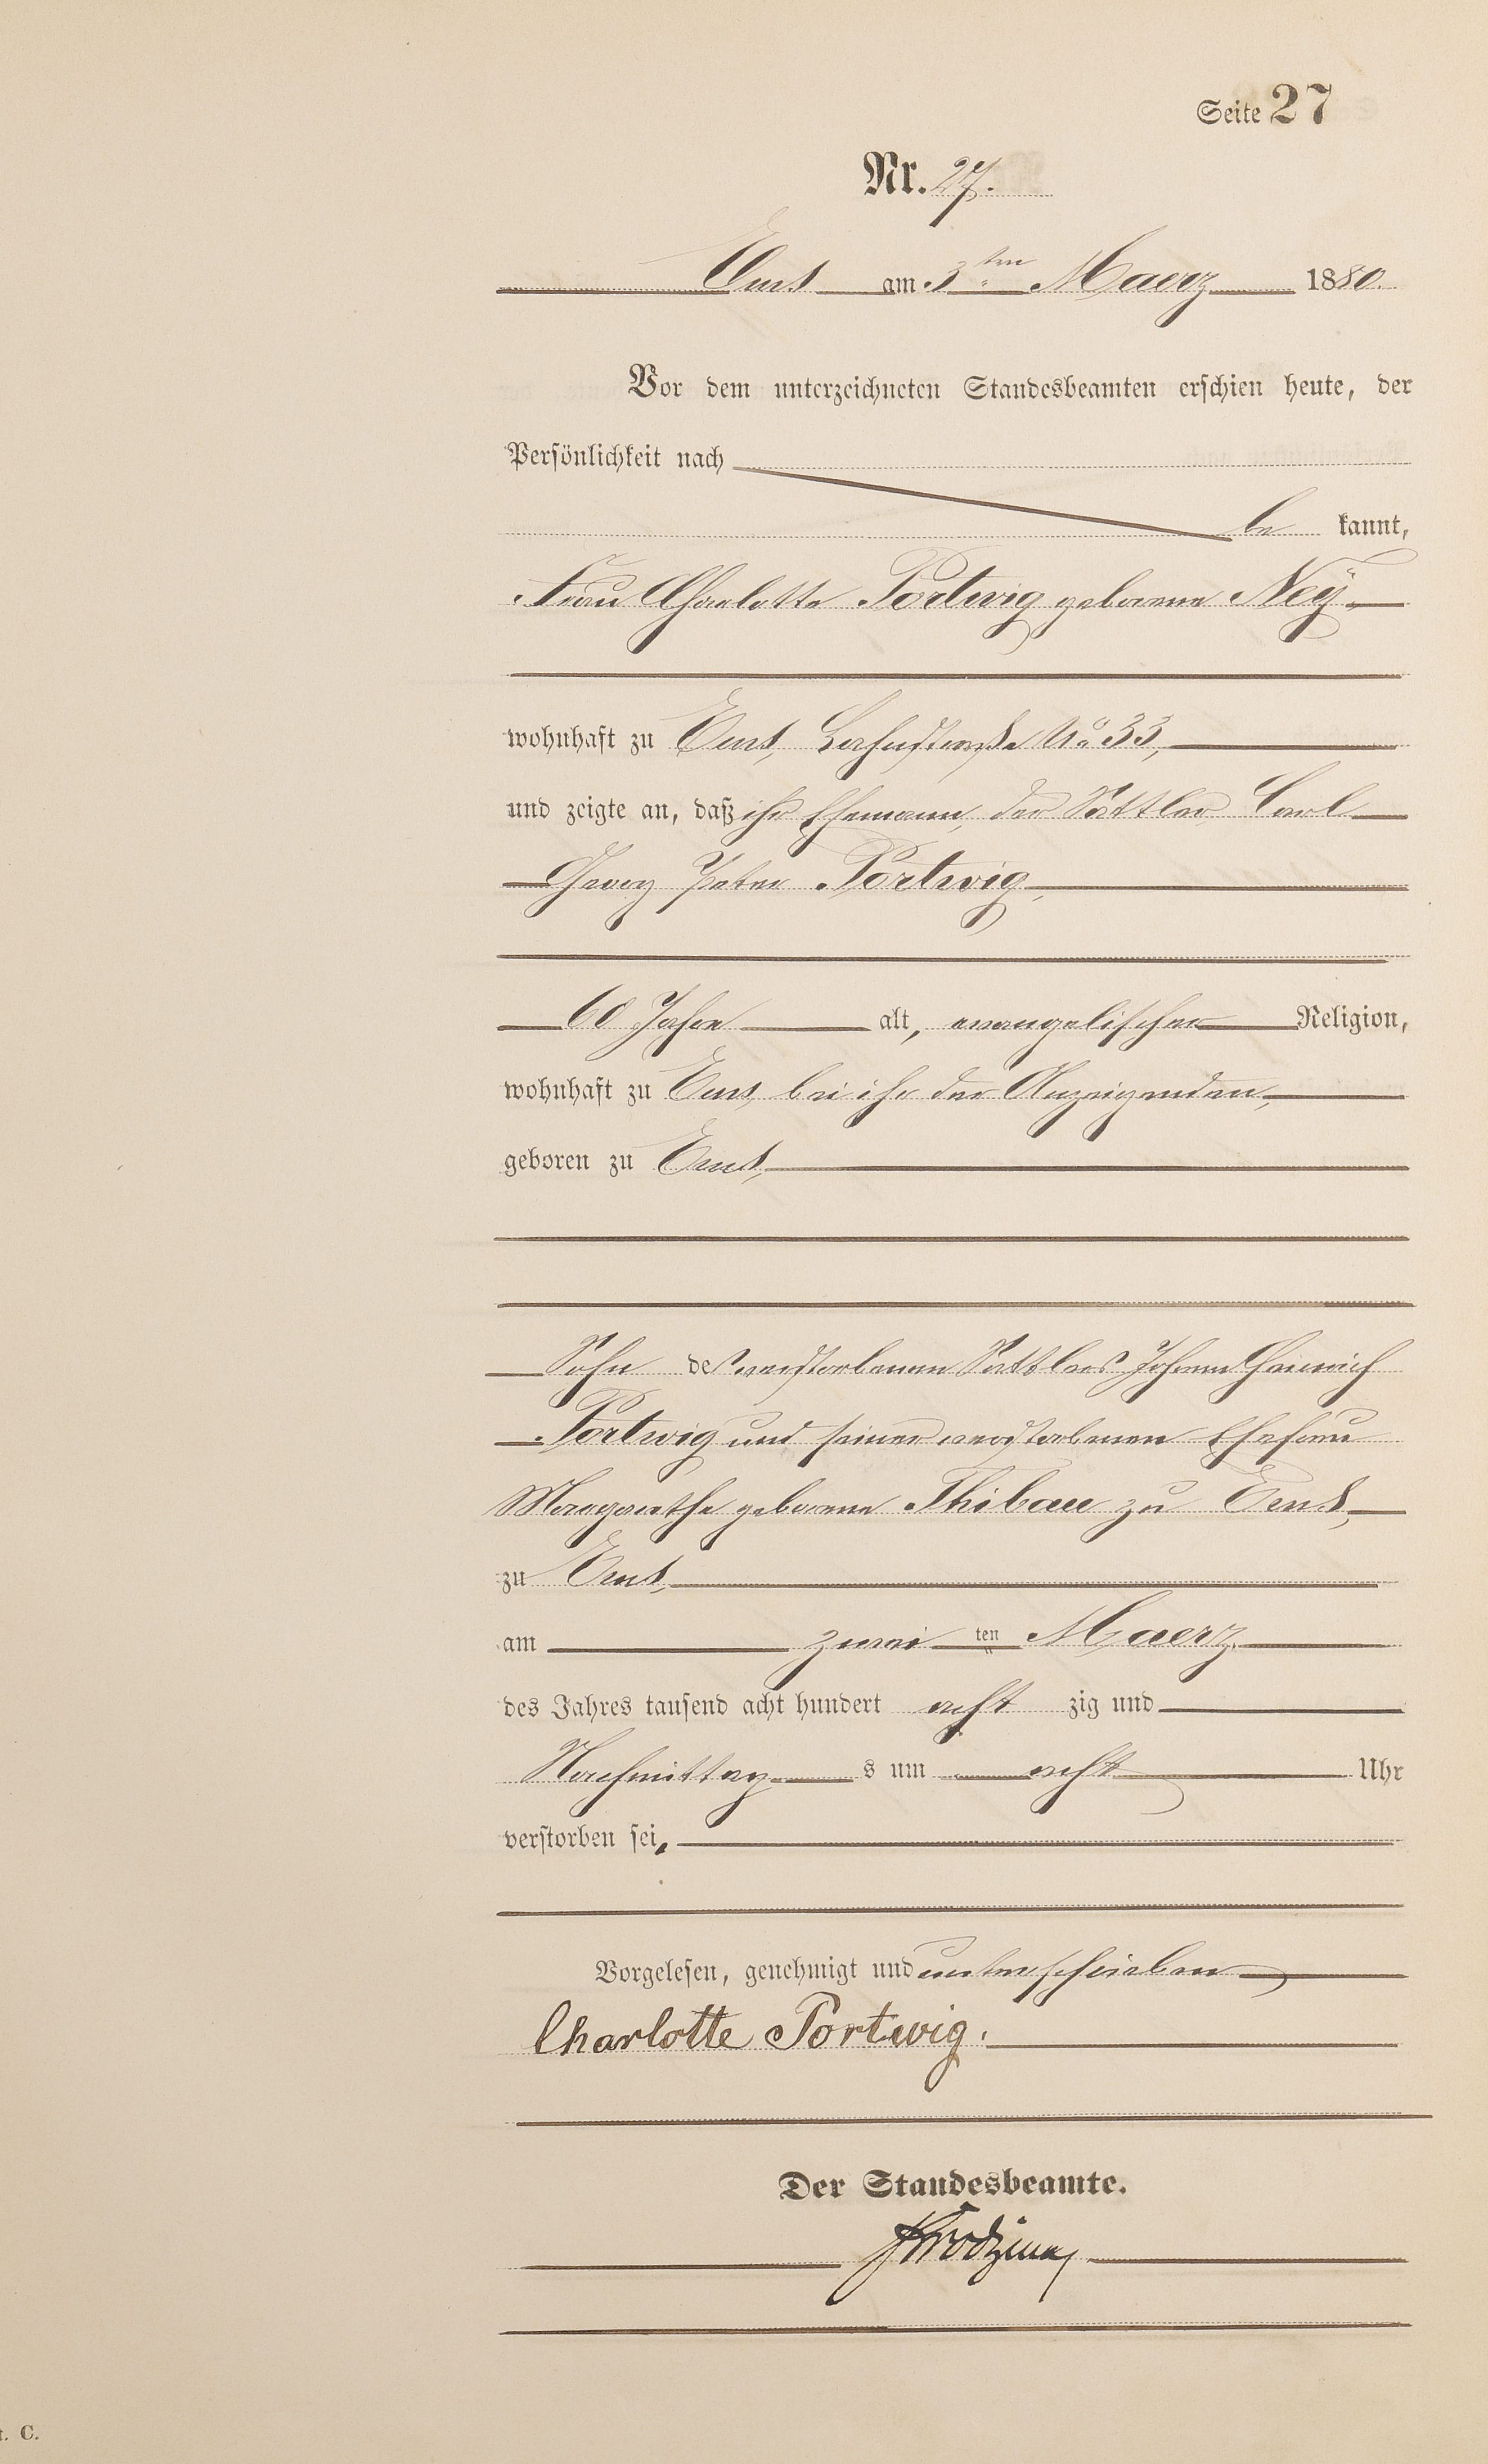 Seite 27
Nr. 27.
Ems am 3ten Maerz 1880.
Vor dem unterzeichneten Standesbeamten erschien heute, der
Persönlichkeit nach
be kannt,
Frau Charlotte Portwig geborene Neÿ,
wohnhaft zu Ems, Lahnstraße No 33,
und zeigte an, daß ihr Ehemann, der Sattler Carl
Georg Peter Portwig,
60 Jahre alt, evangelischer Religion,
wohnhaft zu Ems, bei ihr der Anzeigenden,
geboren zu Ems,
Sohn des verstorbenen Sattlers Johann Heinrich
Portwig und seiner verstorbenen Ehefrau
Margarethe geborene Thibau zu Ems,
zu Ems,
am zwei ten Maerz
des Jahres tausend acht hundert acht zig und
Nachmittag s um acht Uhr
verstorben sei.
Vorgelesen, genehmigt und unterschrieben
Charlotte Portwig.
Der Standesbeamte.
t. C.